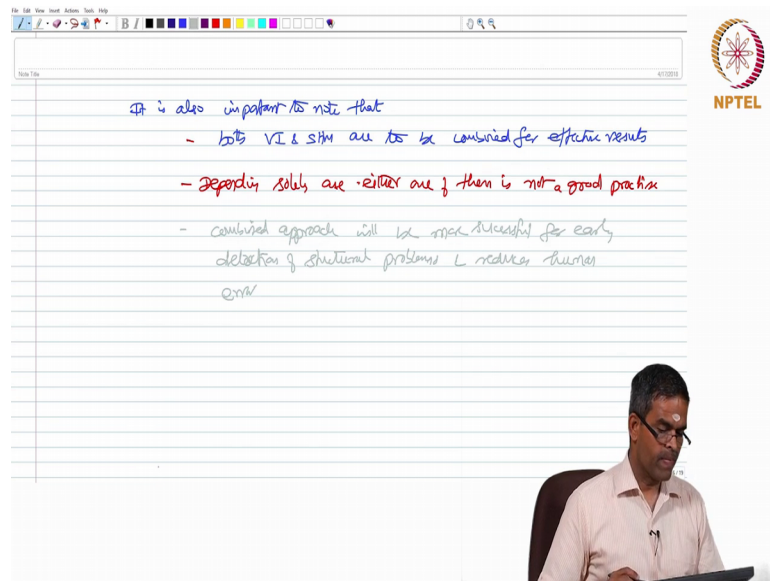 File Edit View Insert Actions Tools Help
B I
Note Title
4/17/2018
NPTEL
It is also important to note that
- both VI & SHM are to be combined for effective results
- Depending solely one either one of them is not a good practise
- combined approach will be more sucessful for early
detection of structural problems & reduces human
error
/ 19